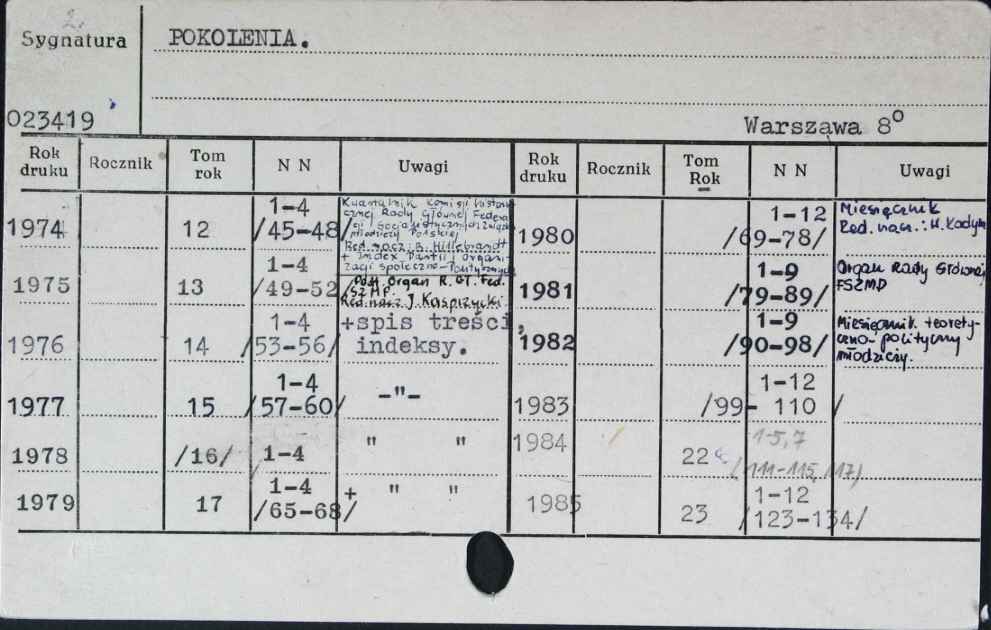 2.
Sygnatura
POKOLENIA.
023419
Warszawa 8°
Rok druku Rocznik Tom rok N N Uwagi
Rok druku Rocznik Tom Rok N N Uwagi
1974 12 1-4 /45-48/
Kwartalnik Komisji history
cznej Rady Głównej Federa
cji Socjalistycznych Związków
Młodzieży Polskiej
Red. nacz.: B. Hillebrandt
+ Index Partii i organi-
zacji społeczno-politycznych
1975 13 1-4 /49-52/
Podt. Organ R. Gł. Fed.
SZMP.
Red. nacz. J. Kasprzycki
1976 14 1-4 /53-56/
+spis treści,
indeksy.
1977 15 1-4 /57-60/ -"-
1978 /16/ 1-4 " "
1979 17 1-4 /65-68/ + " "
1980 1-12 /69-78/
Miesięcznik
Red. nacz.: H.
1981 1-9 /79-89/
Organ Rady Głównej
FSZMP
1982 1-9 /90-98/
Miesięcznik teorety-
czno-polityczny
młodzieży.
1983 1-12 /99- 110 /
1984 22 1-5,7 (111-115, 117)
1985 23 1-12 /123-134/